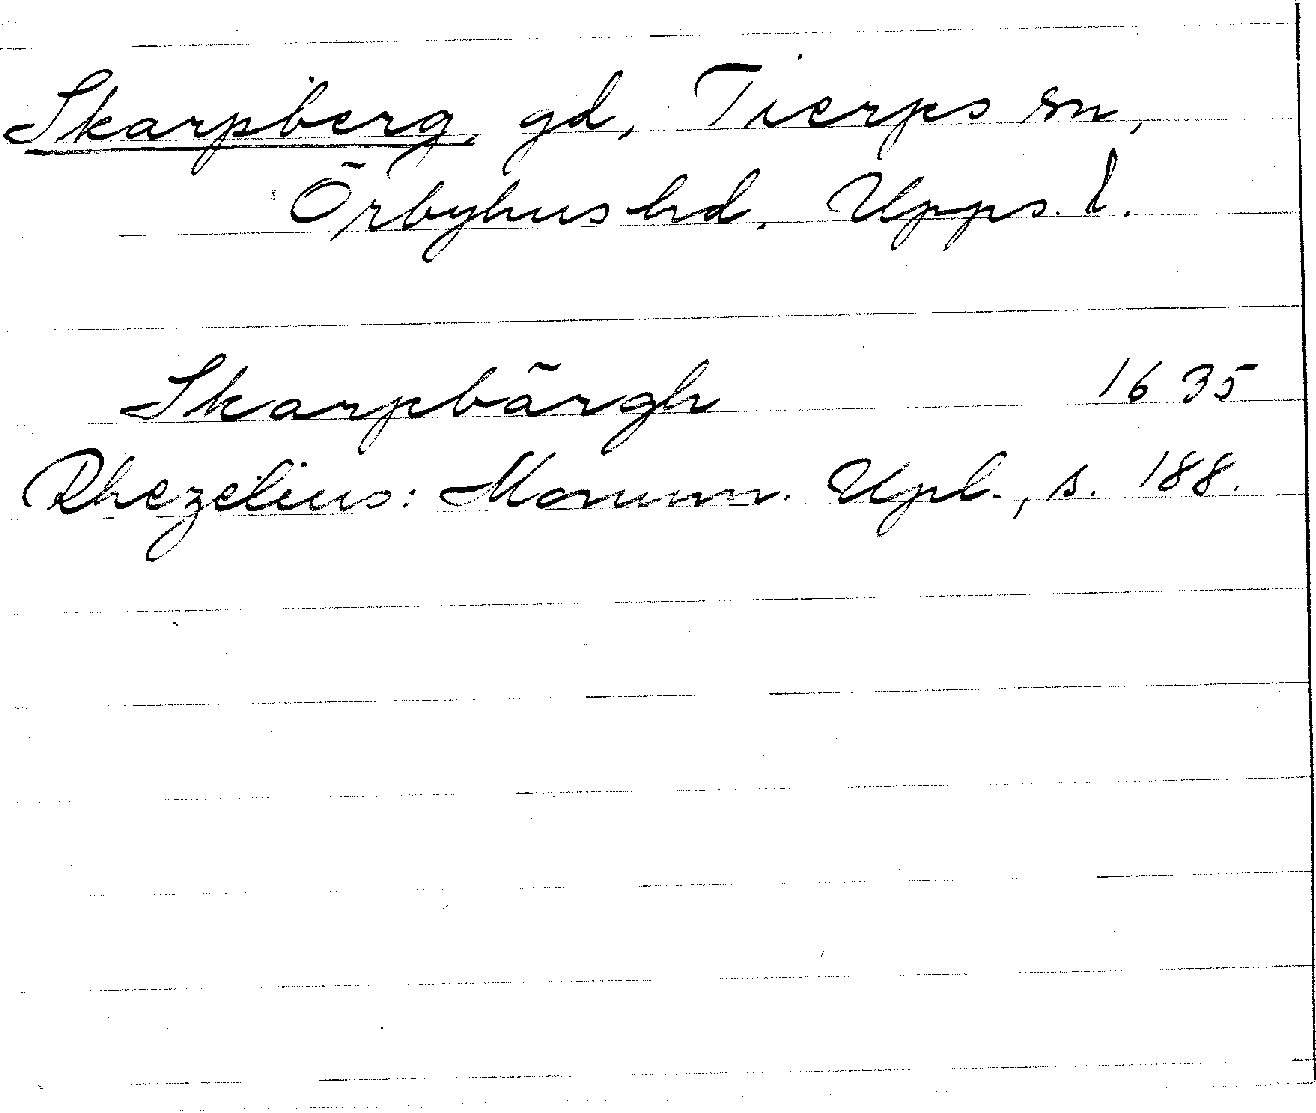 Skarpberg, gd, Tierps sn,
Örbyhus hd. Upps. l.
Skarpbärgh 1635
Rhezelius: Monum. Upl., s. 188.